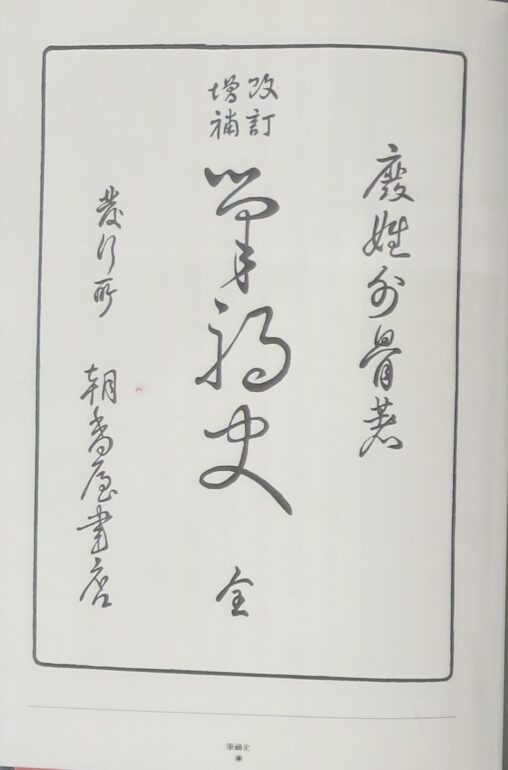 廢姓外骨著
改訂
增補
筆禍史
全
發行所
朝香屋書店
筆禍史